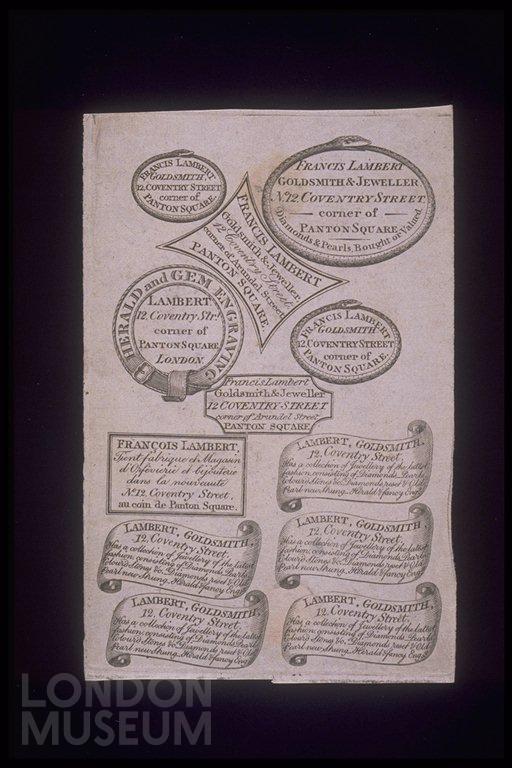 FRANCIS LAMBERT
GOLDSMITH,
12, COVENTRY STREET
corner of
PANTON SQUARE
FRANCIS LAMBERT
GOLDSMITH & JEWELLER
No. 12, COVENTRY STREET
corner of
PANTON SQUARE
Diamonds & Pearls, Bought or Valued.
FRANCIS LAMBERT
Goldsmith & Jeweller
12 Coventry Street
corner of Arundel Street
PANTON SQUARE.
HERALD and GEM ENGRAVING
LAMBERT,
12, Coventry Strt.
corner of
PANTON SQUARE
LONDON.
FRANCIS LAMBERT
GOLDSMITH
12 COVENTRY STREET
corner of
PANTON SQUARE.
Francis Lambert
Goldsmith & Jeweller
12 COVENTRY-STREET
corner of Arundel Street
PANTON SQUARE
FRANÇOIS LAMBERT,
Tient fabrique et Magasin
d'Orfévrerie et bijouterie
dans la nouveauté
No. 12, Coventry Street,
au coin de Panton Square.
LAMBERT, GOLDSMITH,
12, Coventry Street,
Has a collection of Jewellery of the latest
fashion, consisting of Diamonds, Pearls
Colour'd Stones &c. Diamonds reset & Old
Pearl new strung. Herald & fancy Engg.
LAMBERT, GOLDSMITH,
12, Coventry Street,
Has a collection of Jewellery of the latest
fashion, consisting of Diamonds, Pearls
Colour'd Stones &c. Diamonds reset & Old
Pearl new strung. Herald & fancy Engg.
LAMBERT, GOLDSMITH,
12, Coventry Street,
Has a collection of Jewellery of the latest
fashion, consisting of Diamonds, Pearls
Colour'd Stones &c. Diamonds reset & Old
Pearl new strung. Herald & fancy Engg.
LAMBERT, GOLDSMITH,
12, Coventry Street,
Has a collection of Jewellery of the latest
fashion, consisting of Diamonds, Pearls
Colour'd Stones &c. Diamonds reset & Old
Pearl new strung. Herald & fancy Engg.
LAMBERT, GOLDSMITH,
12, Coventry Street,
Has a collection of Jewellery of the latest
fashion, consisting of Diamonds, Pearls
Colour'd Stones &c. Diamonds reset & Old
Pearl new strung. Herald & fancy Engg.
LONDON
MUSEUM